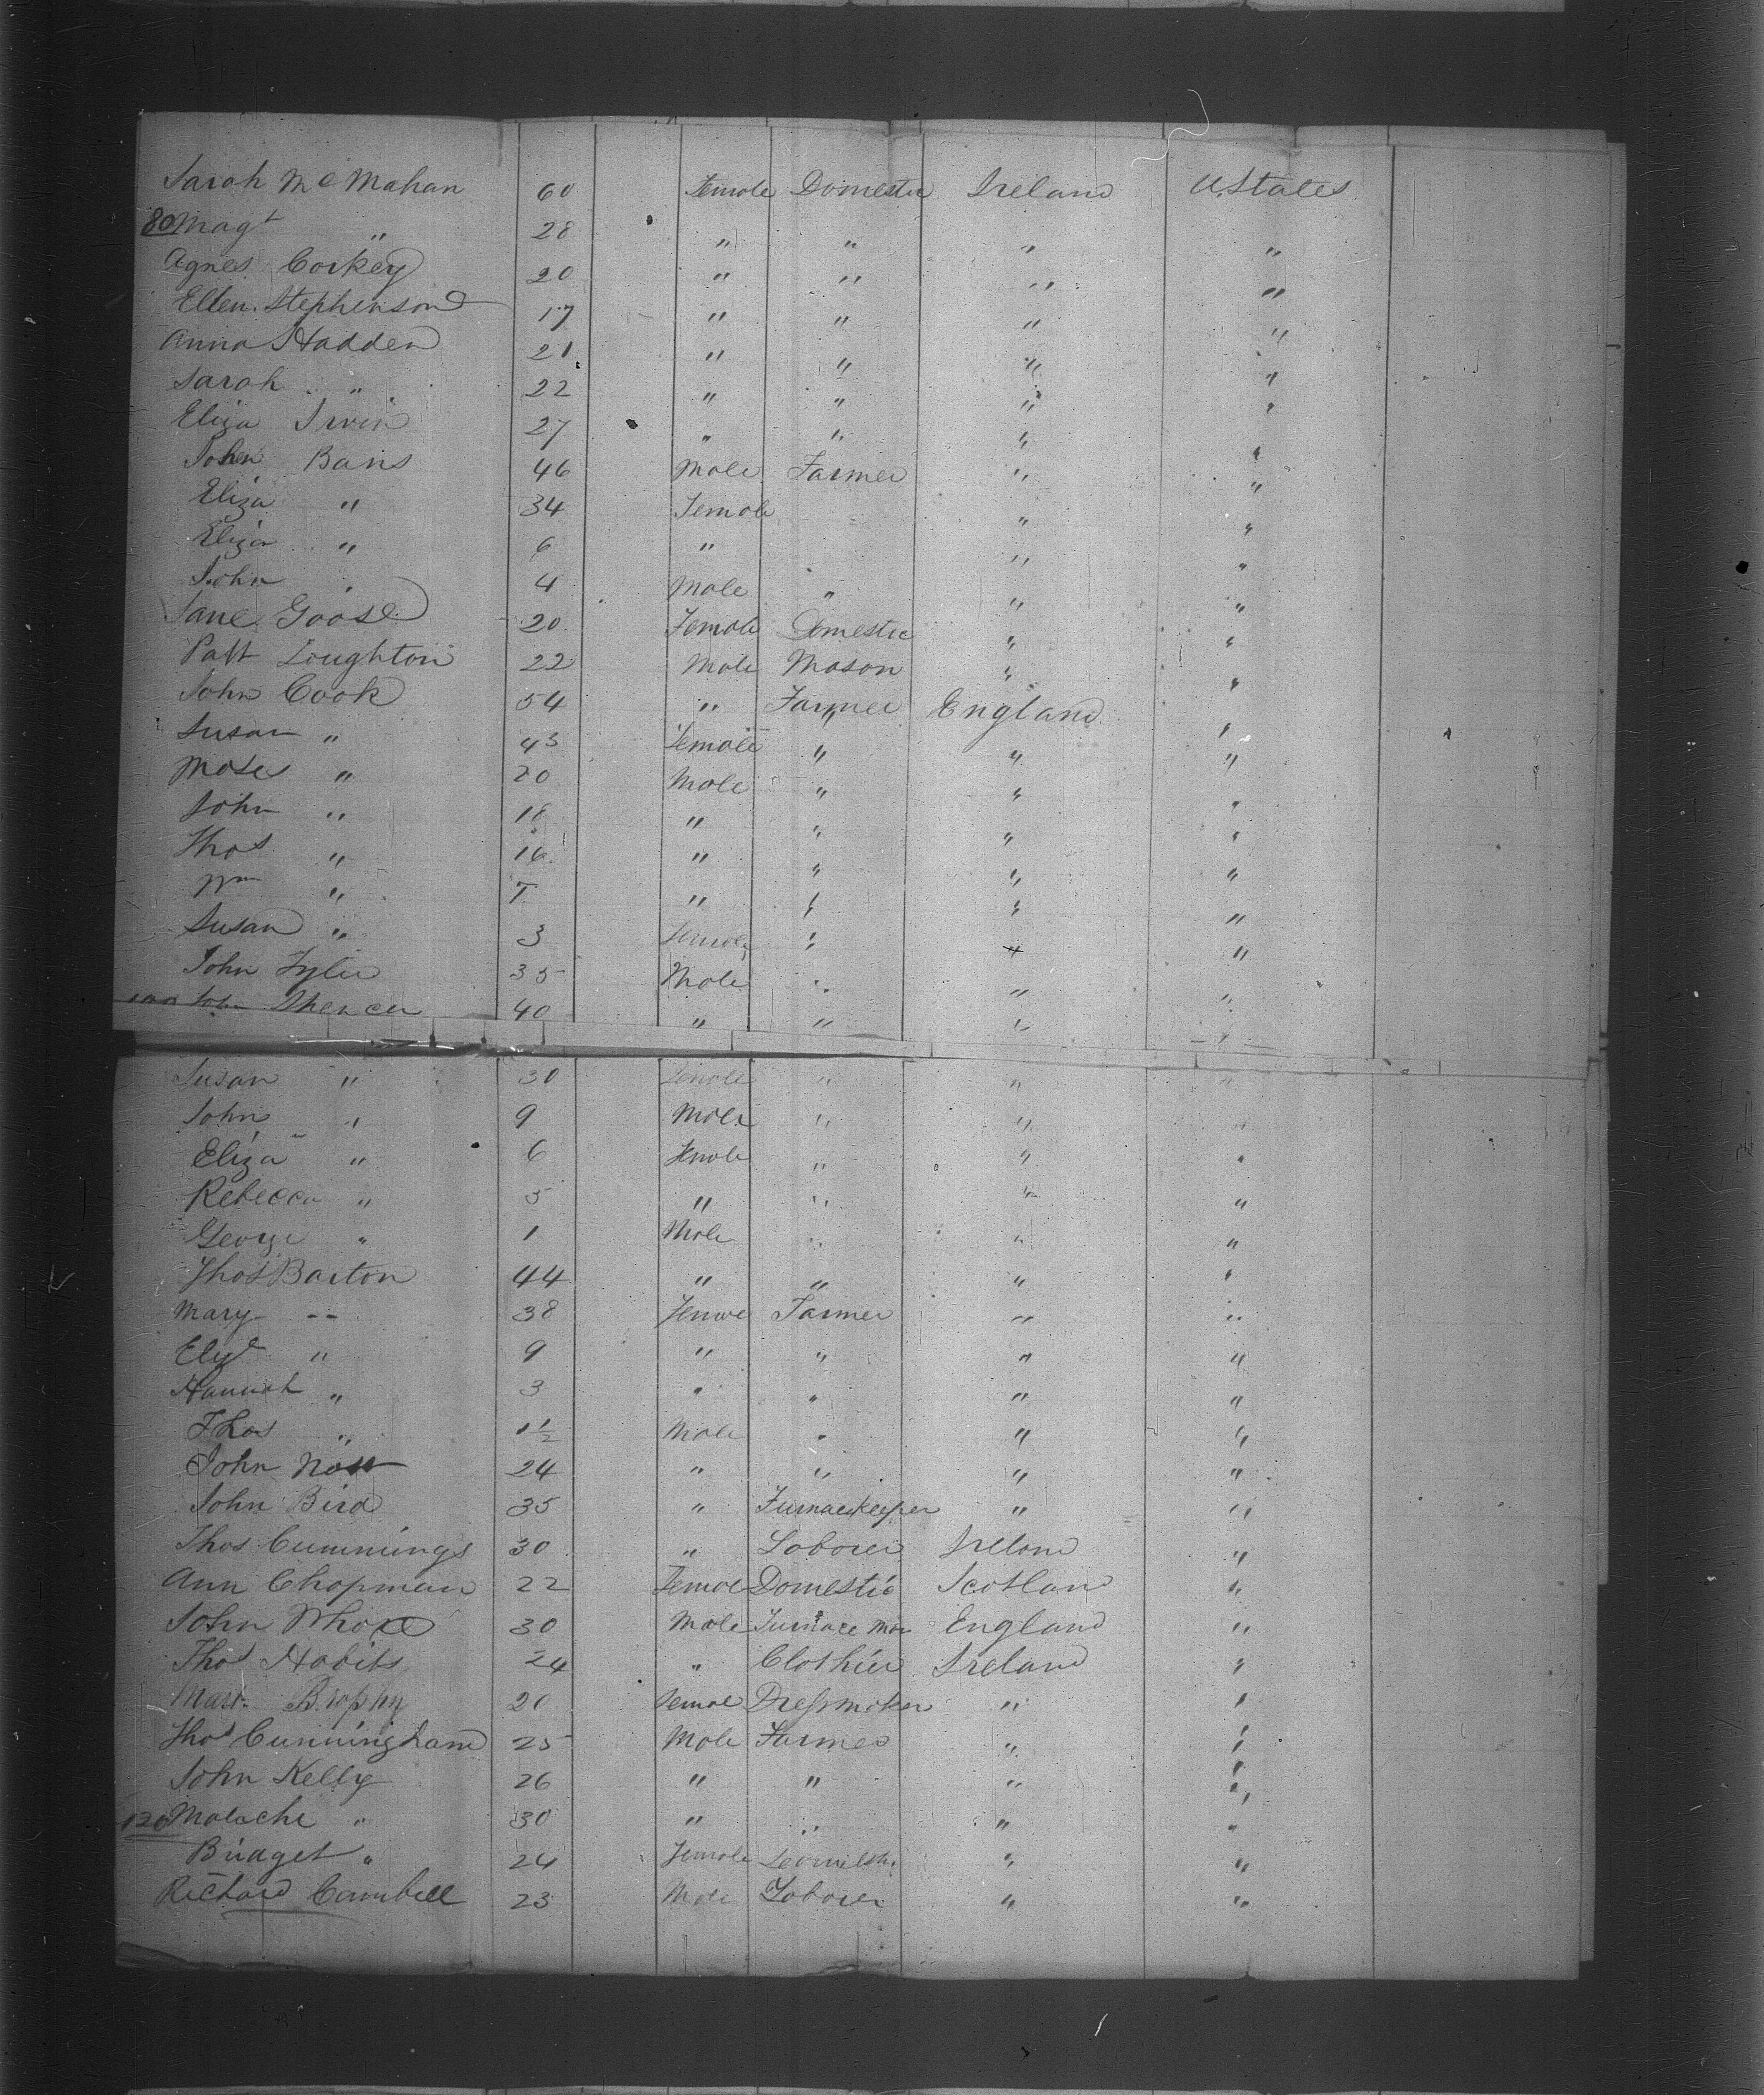 Sarah McMahan 60 Female Domestic Ireland U. States
80 Magt " 28 " " " "
Agnes Corkey 20 " " " "
Ellen Stephenson 17 " " " "
Anna Hadden 21 " " " "
Sarah " 22 " " " "
Eliza Irvin 27 " " " "
John Baris 46 Male Farmer " "
Eliza " 34 Female " "
Eliza " 6 " " "
John " 4 Male " " "
Jane Goose 20 Female Domestic " "
Patt Loughton 22 Male Mason " "
John Cook 54 " Farmer England "
Susan " 43 Female " " "
Moses " 20 Male " " "
John " 18 " " " "
Thos " 16 " " " "
Wm " 7 " " " "
Susan " 3 Female " " "
John Tyler 35 Male " " "
100 John Spencer 40 " " " "
Susan " 30 Female " " "
John " 9 Male " " "
Eliza " 6 Female " " "
Rebecca " 5 " " " "
George " 1 Male " " "
Thos Barton 44 " " " "
Mary -- 38 Female Farmer " "
Eliz " 9 " " " "
Hannah " 3 " " " "
Thos " 1 1/2 Male " " "
John Nott 24 " " " "
John Bird 35 " Furnacekeeper " "
Thos Cummings 30 " Laborer Ireland "
Ann Chapman 22 Female Domestic Scotland "
John 30 Male Furnace Man England "
Thos Hobits 24 " Clothier Ireland "
Mary Brophy 20 Female Dressmaker " "
Thos Cunningham 25 Male Farmer " "
John Kelly 26 " " " "
120 Malache " 30 " " " "
Bridget " 24 Female " "
Richard Cambell 23 Male Laborer " "